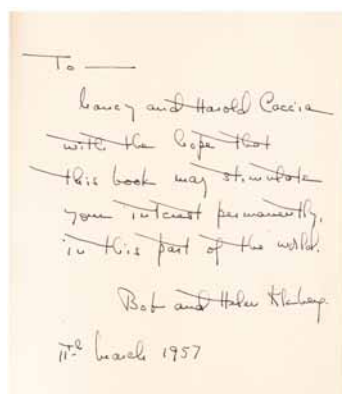 To —
Nancy and Harold Caccia
with the hope that
this book may stimulate
your interest permanently,
in this part of the world.
Bob and Helen Kleberg
11th March 1957